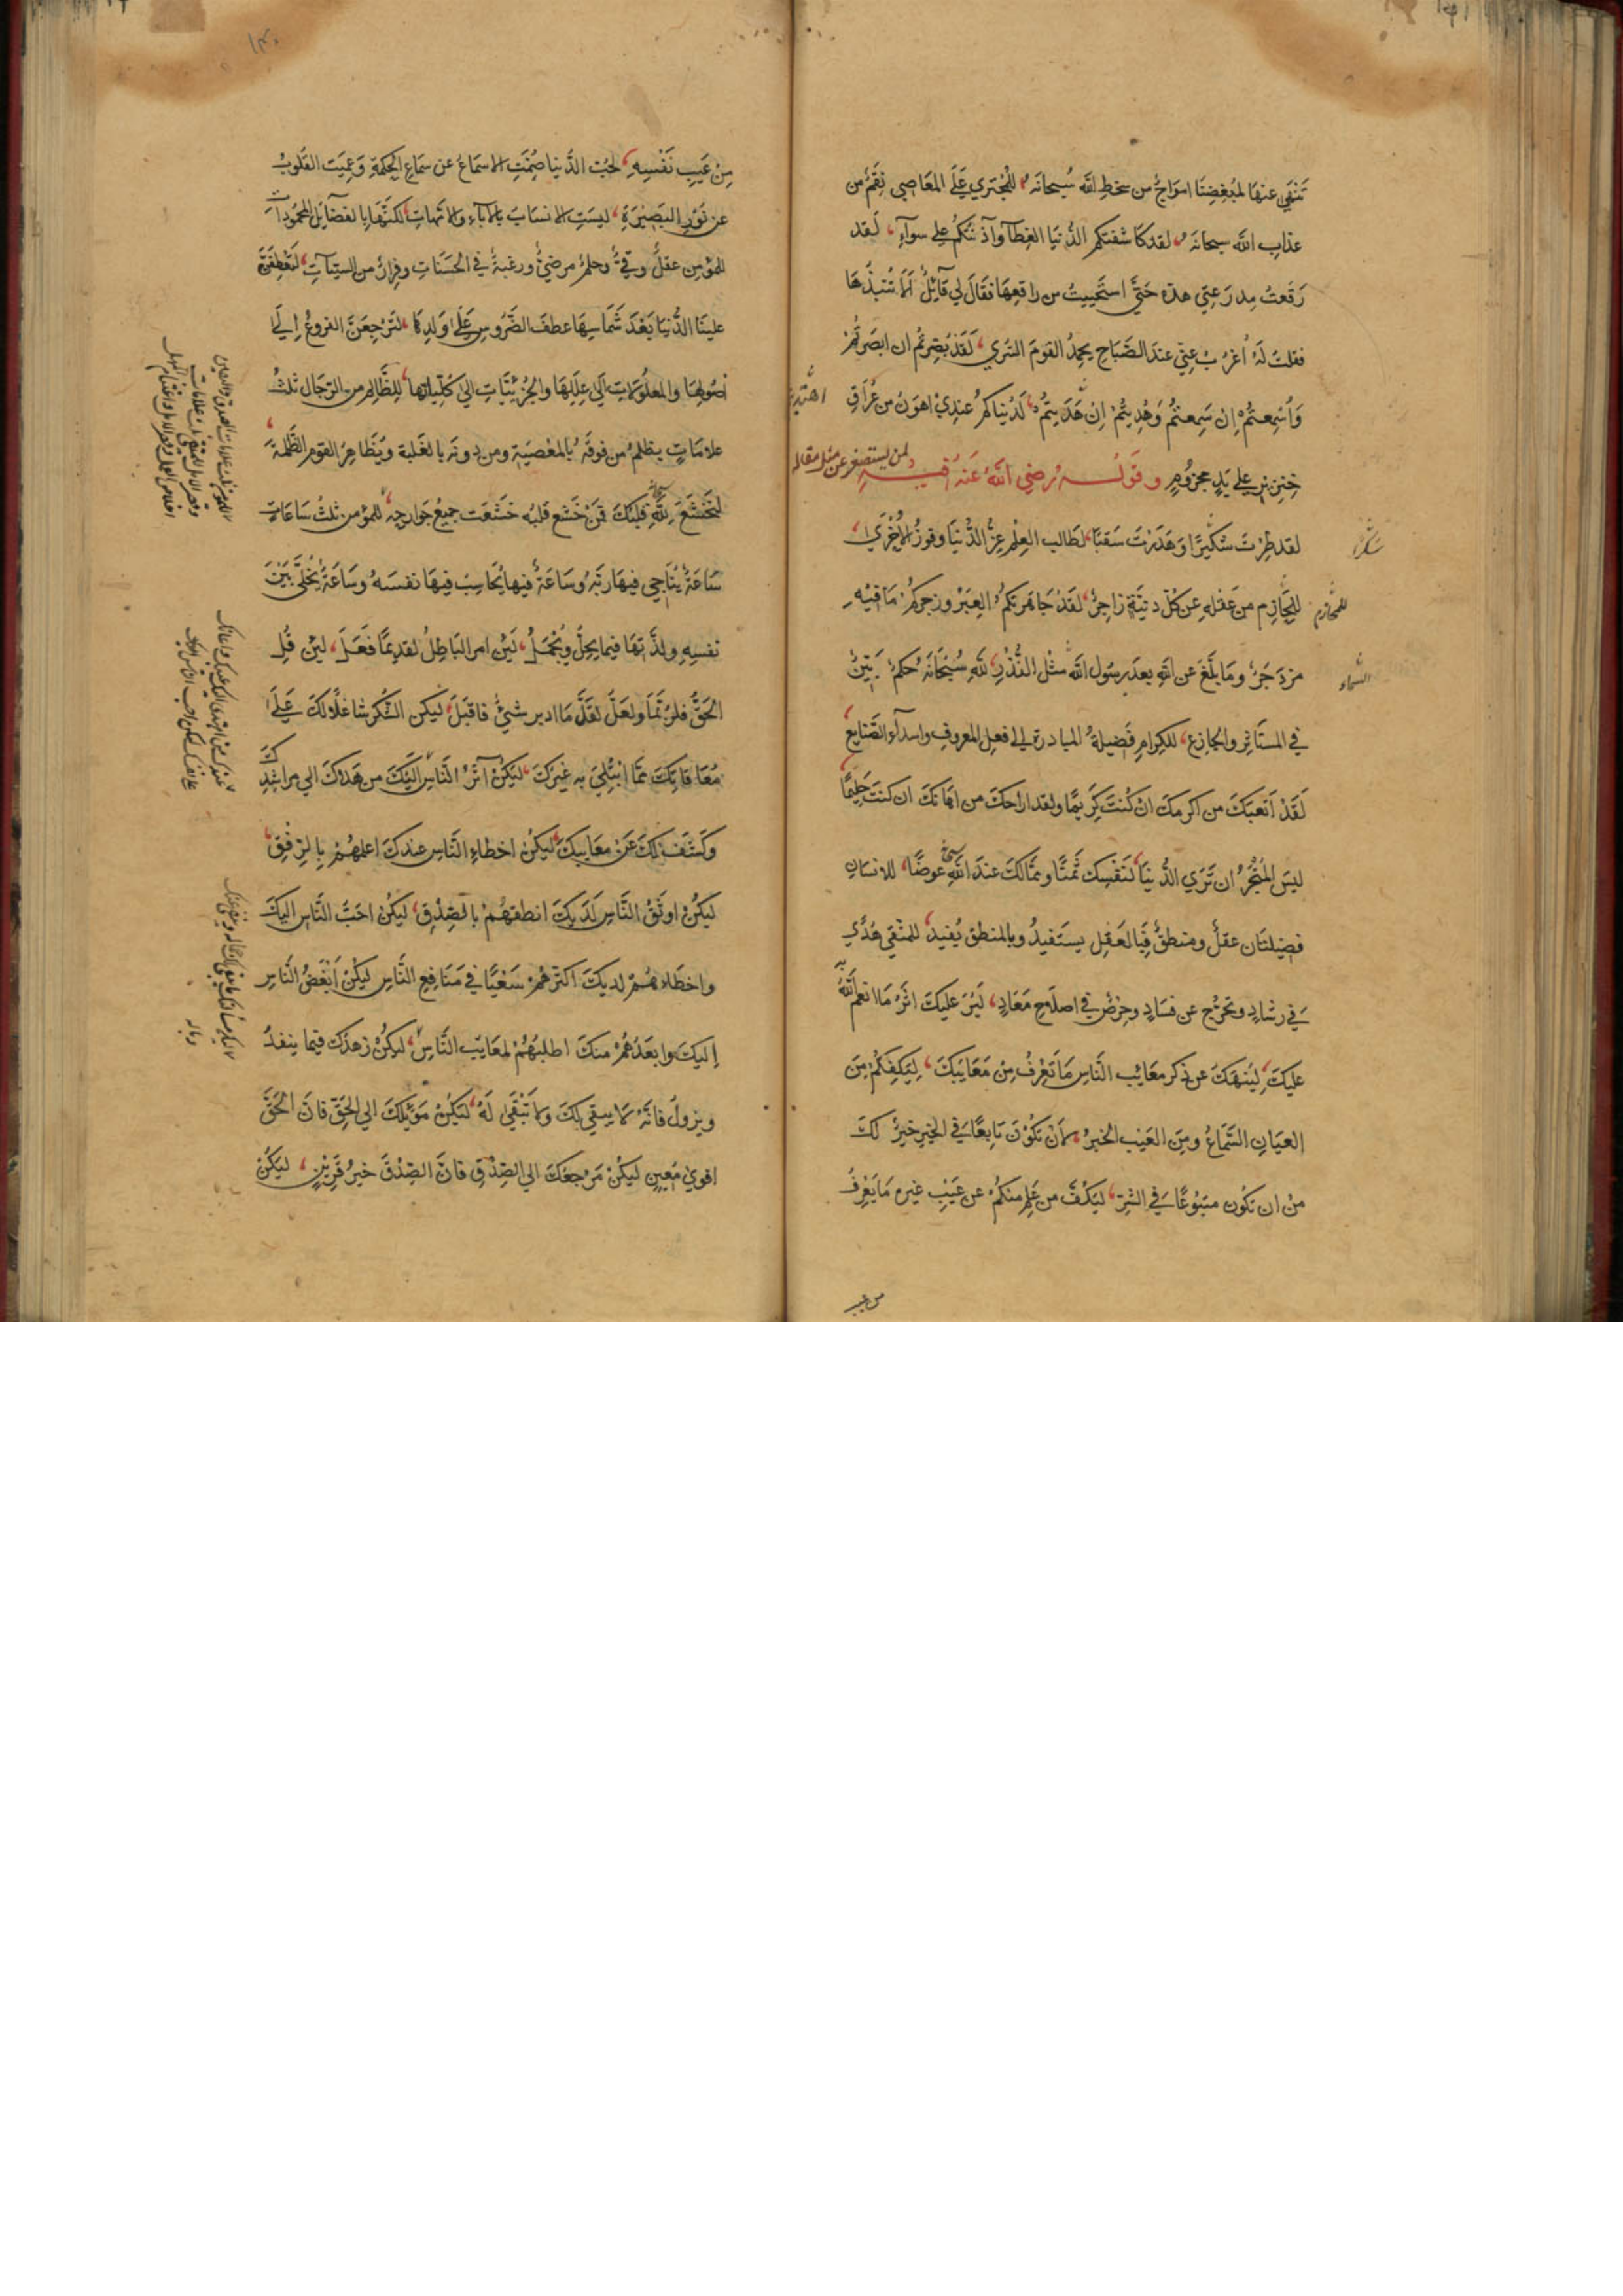 تنفي عنها لمبغضنا امواج من سخط الله سبحانه للمجتري على المعاصي نقم من
عذاب الله سبحانه، لقد كاشفتكم الدنيا الغطآ وآذنتكم على سوآء، لقد
رقعت مدرعتي هذه حتى استحييت من راقعها فقال لي قآئل ألا تنبذها
فقلت له اغرب عني عند الصباح يحمد القوم السري، لقد بصرتم ان ابصرتم
وأسمعتم ان سمعتم وهديتم ان هديتم، لدنياكم عندي اهون من عراق
اهتديتم
خنزير على يد مجزوم وقوله رضي الله عنه لمن يستصغر عن مثل مقاله
لقد طرت شكيرا وهدرت سقبا، لطالب العلم عز الدنيا وفوز الاخرى،
للحازم من عقله عن كل دنية زاجر، لقد جاهرتكم العبر وزجركم ما فيه
للحازم
مزدجر وما بلغ عن الله بعد رسول الله مثل النذر، لله سبحانه حكم بين
السماء
في المستاثر والجازع، للكرام فضيلة المبادرة الى فعل المعروف واسدآء الصنايع
لقد أتعبك من اكرمك ان كنت كريما ولقد اراحك من اهانك ان كنت حليما
ليس المتجر ان ترى الدنيا لنفسك ثمنا ومما لك عند الله عوضا، للانسان
فضيلتان عقل ومنطق فبالعقل يستفيد وبالمنطق يفيد، للمتقي هدى
في رشاد وتحرج عن فساد وحرص في اصلاح معاد، لير عليك اثر ما انعم الله به
عليك، لينهك عن ذكر معايب الناس ما تعرف من معايبك، ليكفكم من
العيان السماع ومن الغيب الخبر، لأن تكون تابعا في الخير خير لك
من ان تكون متبوعا في الشر، ليكف من علم منكم عن عيب غيره ما يعرف
من عيب
١٣٠
من عيب نفسه، لحب الدنيا صمت الاسماع عن سماع الحكمة وعميت القلوب
عن نور البصيرة، ليست الانساب بالاباء والامهات لكنها بالفضآئل المحمودات
للمؤمن عقل وفي وحلم مرضي ورغبة في الحسنات وفرار من السيئآت، لتعطفن
علينا الدنيا بعد شماسها عطف الضروس على ولدها، لترجعن الفروع الى
اصولها والمعلولات الى عللها والجزئيات الى كلياتها، للظالم من الرجال ثلث
علامات يظلم من فوقه بالمعصية ومن دونه بالغلبة ويظاهر القوم الظلمة
لتخشع لله سبحانه قلبك فمن خشع قلبه خشعت جميع جوارحه، للمؤمن ثلث ساعات
ساعة يناجي فيها ربه وساعة فيها يحاسب فيها نفسه وساعة يخلي بين
نفسه ولذتها فيما يحل ويجمل، لئن امر الباطل لقديما فعل، لئن قل
الحق فلربما ولعل لقل ما ادبر شيئ فاقبل، ليكن الشكر شاغلا لك على
معافاتك مما ابتلي به غيرك، ليكن آثر الناس اليك من هداك الى مراشدك
وكشف لك عن معايبك، ليكن احظاء الناس عندك اعلمهم بالرفق،
ليكن اوثق الناس لديك انطقهم بالصدق، ليكن احب الناس اليك
واحظاهم لديك اكثرهم سعيا في منافع الناس ليكن ابغض الناس
اليك وابعدهم منك اطلبهم لمعايب الناس، ليكن زهدك فيما ينفد
ويزول فانه لا يبقى لك ولا تبقى له، ليكن موئلك الى الحق فان الحق
اقوى معين ليكن مرجعك الى الصدق فان الصدق خير قرين، ليكن